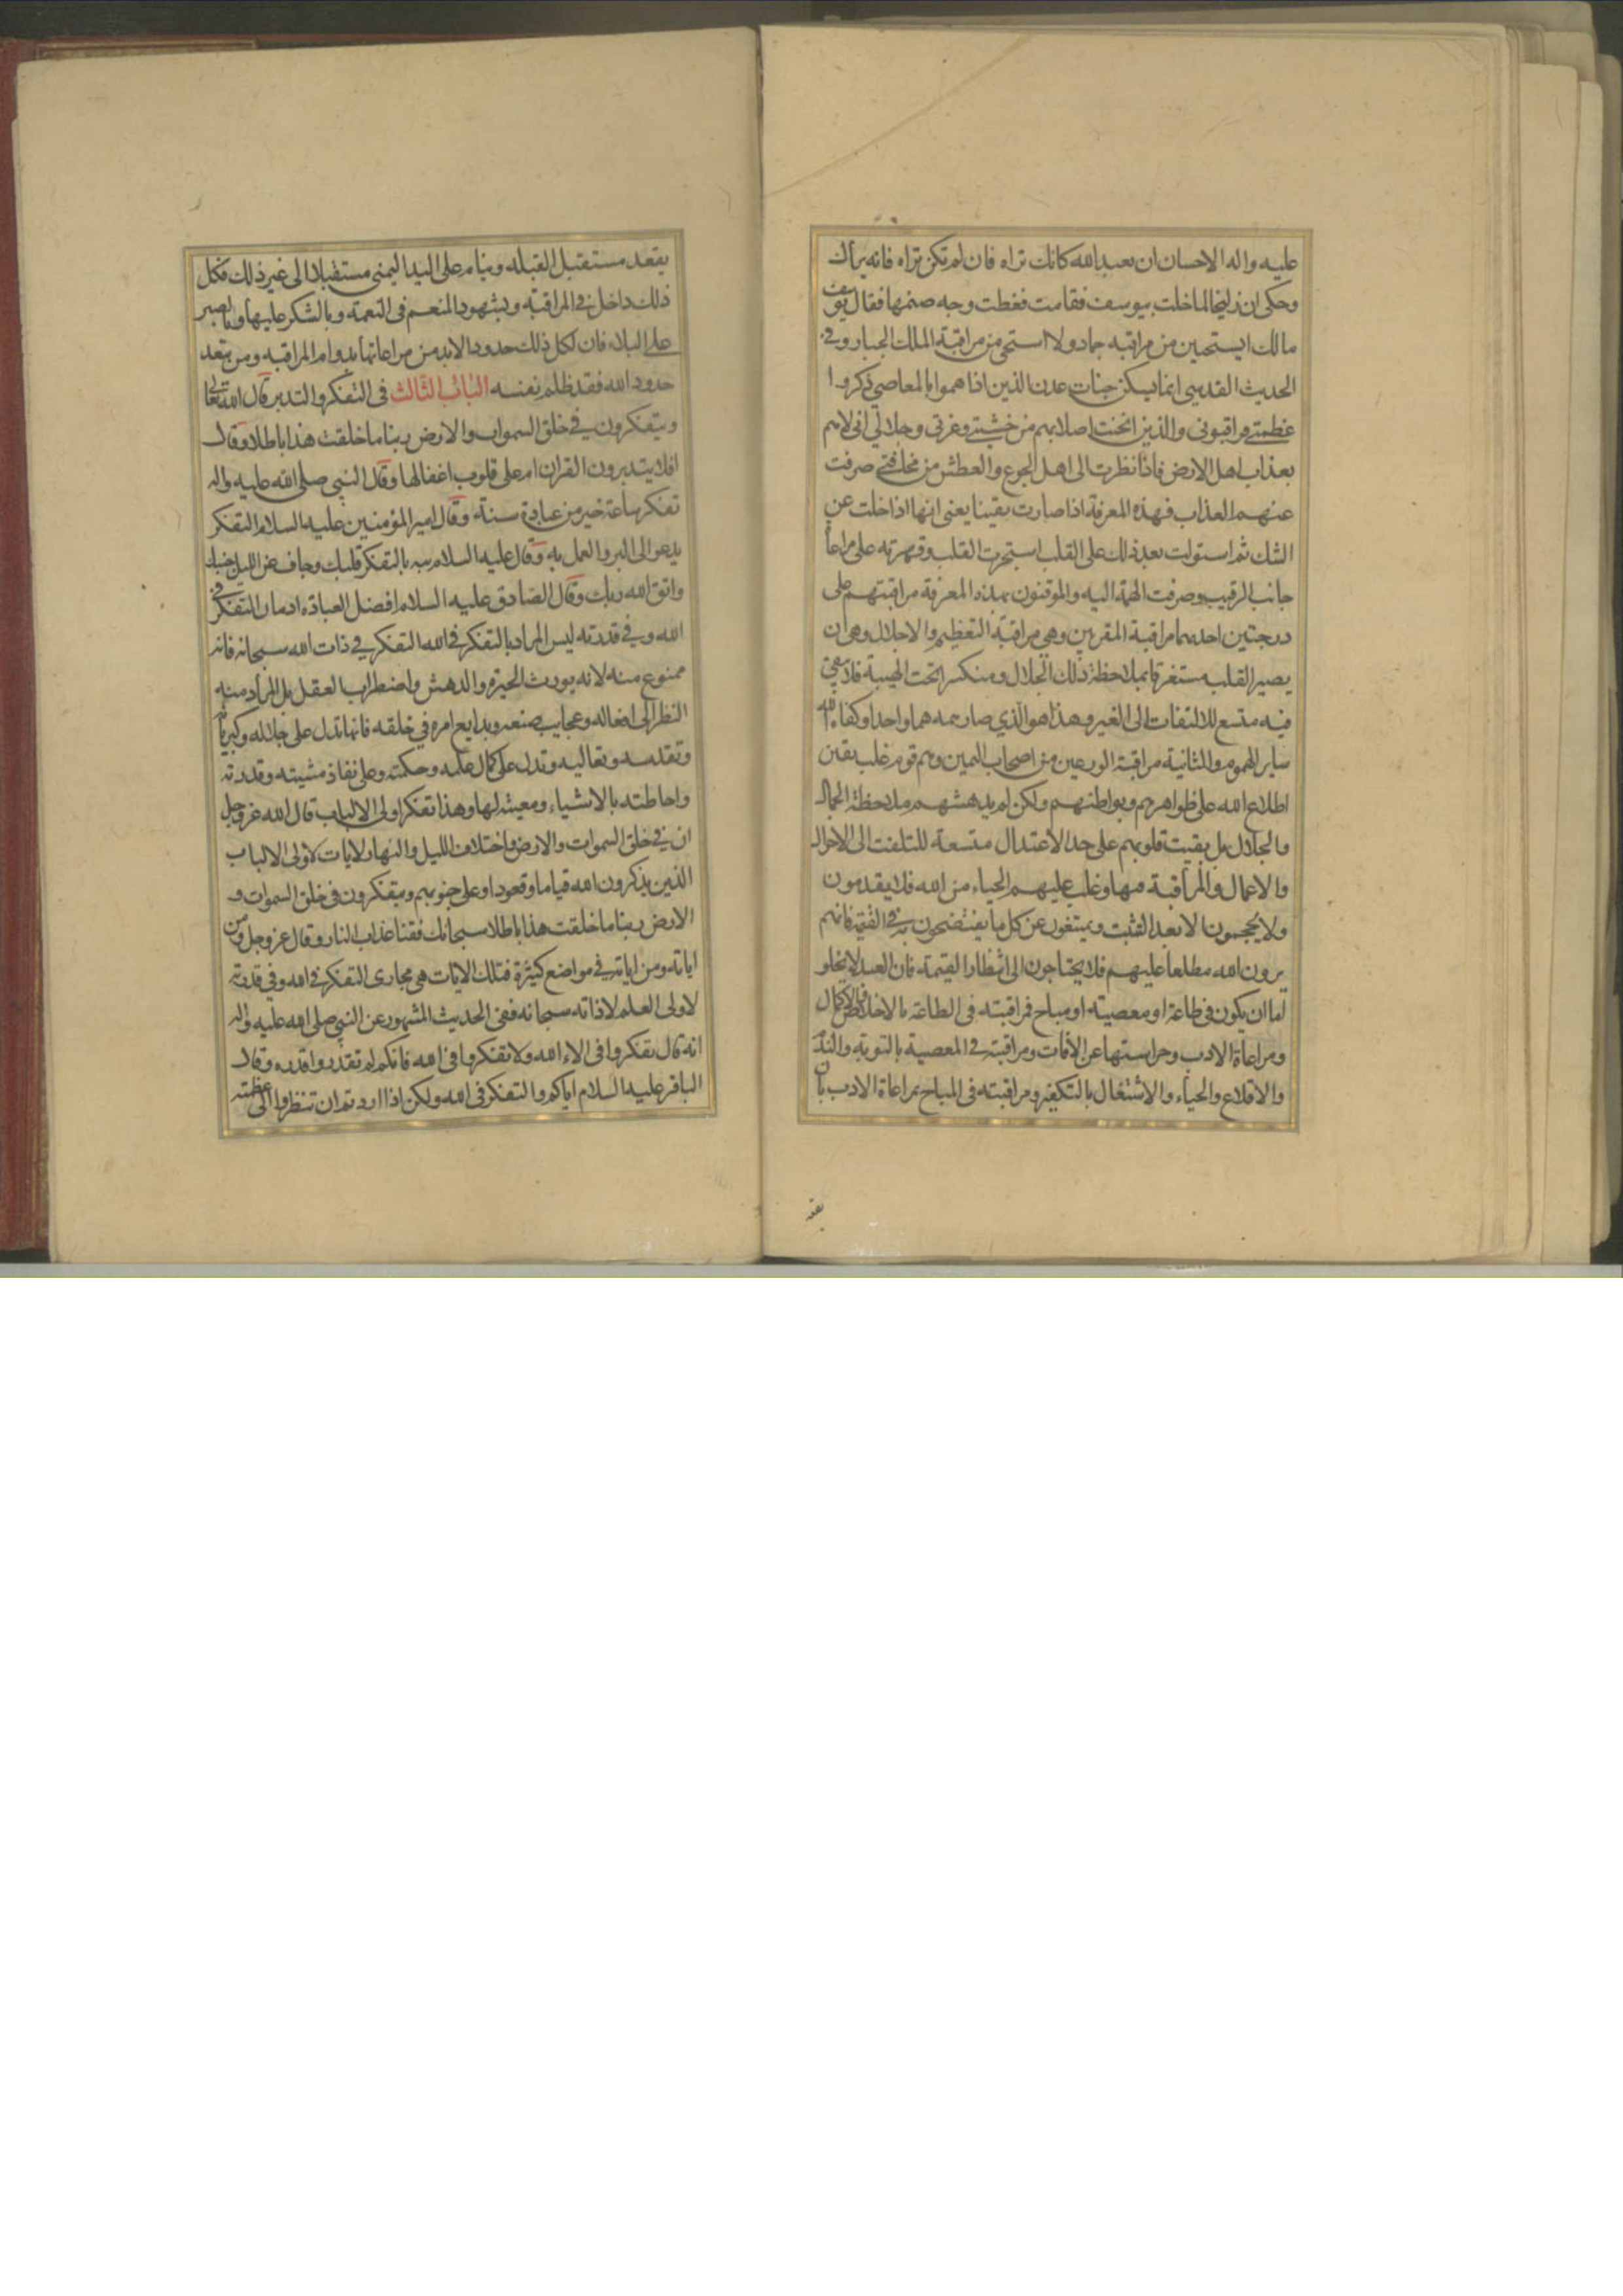 عليه واله الاحسان ان تعبد الله كانك تراه فان لم تكن تراه فانه يراك
وحكى ان زليخا لما خلت بيوسف فقامت فغطت وجه صنمها فقال يوسف
مالك ايستحين من مراقبه جماد ولا استحى من مراقبة الملك الجبار وفى
الحديث القدسى انما يسكن جنات عدن الذين اذا هموا بالمعاصى ذكروا
عظمتى فراقبونى والذين انحنت اصلابهم من خشيتى وعزتى وجلالى انى لاهم
بعذاب اهل الارض فاذا نظرت الى اهل الجوع والعطش من مخافتى صرفت
عنهم العذاب فهذه المعرفة اذا صارت يقينا يعنى انها اذا خلت عن
الشك ثم استولت بعد ذلك على القلب استجرت القلب وقهرته على مراعاة
جانب الرقيب وصرفت الهمة اليه والموقنون بهذه المعرفة مراقبتهم على
درجتين احدهما مراقبة المقربين وهى مراقبة التعظيم والاجلال وهى ان
يصير القلب مستغرقا بملاحظة ذلك الجلال ومنكسرا تحت الهيبة فلا يبقى
فيه متسع للالتفات الى الغير وهذا هو الذي صار همه هما واحدا وكفاه الله
ساير الهموم والثانية مراقبة الورعين من اصحاب اليمين وهم قوم غلب يقين
اطلاع الله على ظواهرهم وبواطنهم ولكن لم يدهشهم ملاحظة الجمال
والجلال بل بقيت قلوبهم على حد الاعتدال متسعة للتلفت الى الاحوال
والاعمال والمراقبة فيها وغلب عليهم الحياء من الله فلا يقدمون
ولا يحجمون الا بعد التثبت ويمتنعون عن كل ما يفتضحون به فى القيمة فانهم
يرون الله مطلعا عليهم فلا يحتاجون الى انتظار القيمة فان العبد لا يخلو
اما ان يكون فى طاعة او معصيته او مباح فمراقبته فى الطاعة بالاخلاص والاكمال
ومراعاة الادب وحراستها عن الافات ومراقبته فى المعصية بالتوبة والندم
والاقلاع والحياء والاشتغال بالتكفير ومراقبته فى المباح بمراعاة الادب بان
يقعد مستقبل القبله وينام على اليد اليمنى مستقبلا الى غير ذلك فكل
ذلك داخل فى المراقبة وبشهود المنعم فى النعمة وبالشكر عليها وبالصبر
على البلاء فان لكل ذلك حدودا لابد من مراعاتها بدوام المراقبه ومن يتعد
حدود الله فقد ظلم نفسه الباب الثالث فى التفكر والتدبر قال الله تعالى
ويتفكرون فى خلق السموات والارض ربنا ما خلقت هذا باطلا وقال
افلا يتدبرون القران ام على قلوب اقفالها وقال النبى صلى الله عليه واله
تفكر ساعة خير من عبادة سنة وقال امير المؤمنين عليه السلام التفكر
يدعو الى البر والعمل به وقال عليه السلام نبه بالتفكر قلبك وجاف عن الليل جنبك
واتق الله ربك وقال الصادق عليه السلام افضل العباده ادمان التفكر فى
الله وفى قدرته ليس المراد بالتفكر فى الله التفكر فى ذات الله سبحانه فانه
ممنوع منه لانه يورث الحيرة والدهش واضطراب العقل بل المراد منه
النظر الى افعاله وعجايب صنعه وبدايع امره فى خلقه فانها تدل على جلاله وكبريائه
وتقدسه وتعاليه وتدل على كمال علمه وحكمته وعلى نفاذ مشيته وقدرته
واحاطته بالاشياء ومعيته لها وهذا تفكر اولى الالباب قال الله عز وجل
ان فى خلق السموات والارض واختلاف الليل والنهار لايات لاولى الالباب
الذين يذكرون الله قياما وقعودا وعلى جنوبهم ويتفكرون فى خلق السموات و
الارض ربنا ما خلقت هذا باطلا سبحانك فقنا عذاب النار وقال عز وجل ومن
اياته ومن اياته فى مواضع كثيرة فتلك الايات هى مجارى التفكر فى الله وفى قدرته
لاولى العلم لا ذاته سبحانه ففى الحديث المشهور عن النبى صلى الله عليه واله
انه قال تفكروا فى الاء الله ولا تفكروا فى الله فانكم لم تقدروا قدره وقال
الباقر عليه السلام اياكم والتفكر فى الله ولكن اذا اردتم ان تنظروا الى عظمته
يقعد